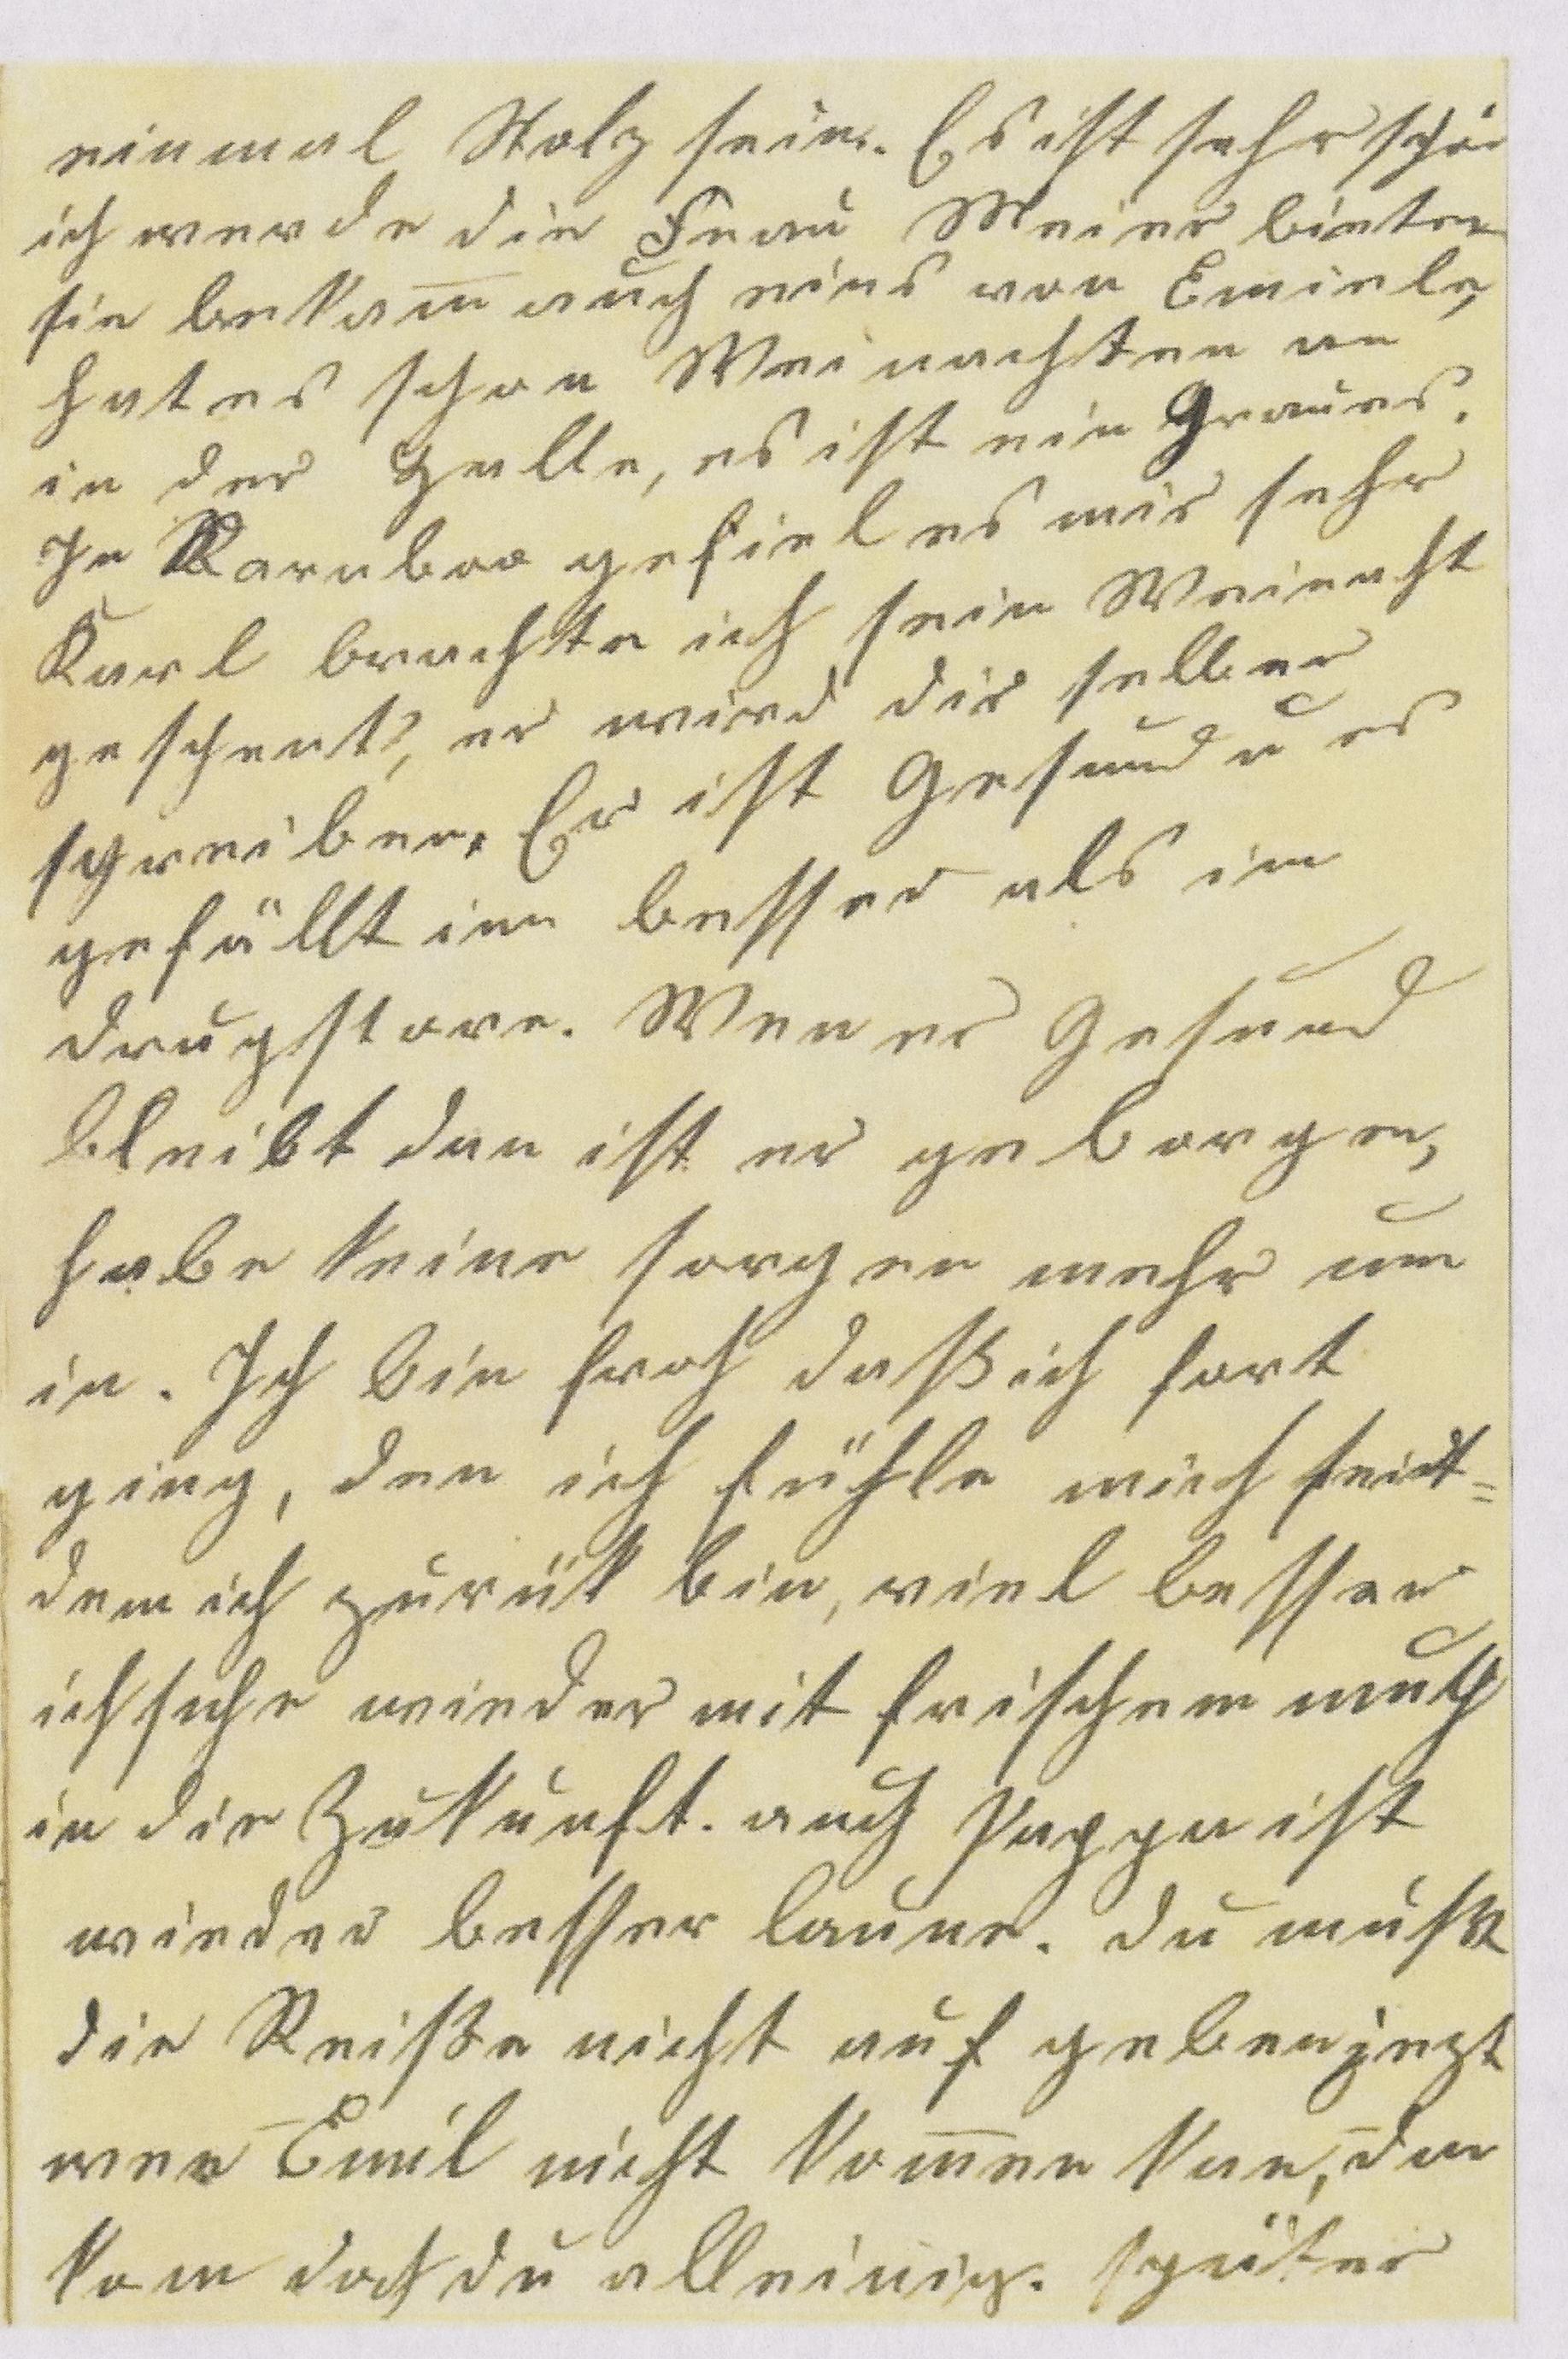 einmal Stolz sein. Es ist sehr schön
ich werde die Frau Meier bieten
sie bekam̅ auch eins von Emiele,
hat es schon Weinachten an
in der Halle, es ist ein Graues.
In gefiel es mir sehr
Karl brachte ich sein Weinacht
geschenk, er wird dir selber
schreiben. Er ist Gesund u es
gefällt im besser als im
drugstore. Wen er Gesund
bleibt dan ist er geborgen,
habe keine sorgen mehr um
in. Ich bin froh daß ich fort
ging, den ich fühle mich seit=
dem ich zurük bin, viel besser
ich sehe wieder mit frischem muth
in die Zukunft. auch Pappa ist
wieder besser laune. du mußt
die Reiße nicht auf geben jezt
wen̅ Emil nicht kom̅en kan, dan̅
kom doch du alleinig. später